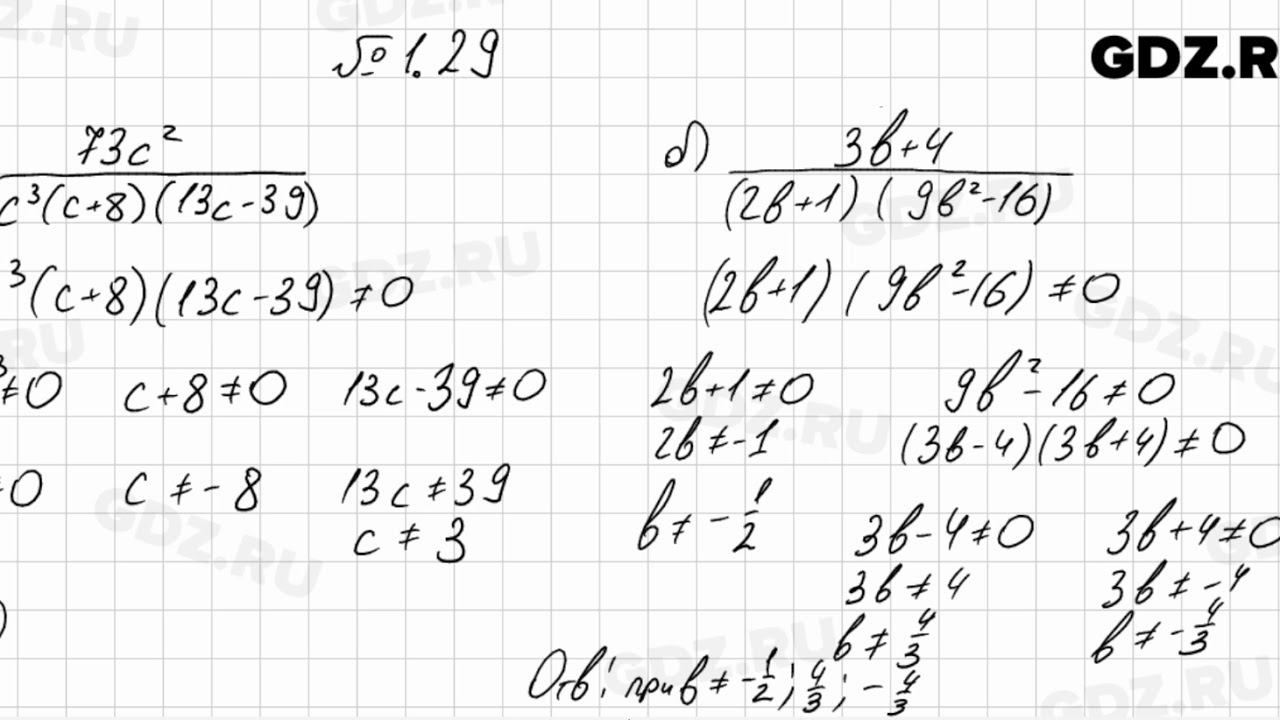 № 1.29
GDZ.R
73c²
c³(c+8)(13c-39)
³(c+8)(13c-39)≠0
³≠0 c+8≠0 13c-39≠0
≠0 c≠-8 13c≠39
c≠3
)
б) 3b+4
(2b+1)(9b²-16)
(2b+1)(9b²-16)≠0
2b+1≠0 9b²-16≠0
2b≠-1 (3b-4)(3b+4)≠0
b≠-1/2 3b-4≠0 3b+4≠0
3b≠4 3b≠-4
b≠4/3 b≠-4/3
Отв: при b≠-1/2; 4/3; -4/3
GDZ.RU